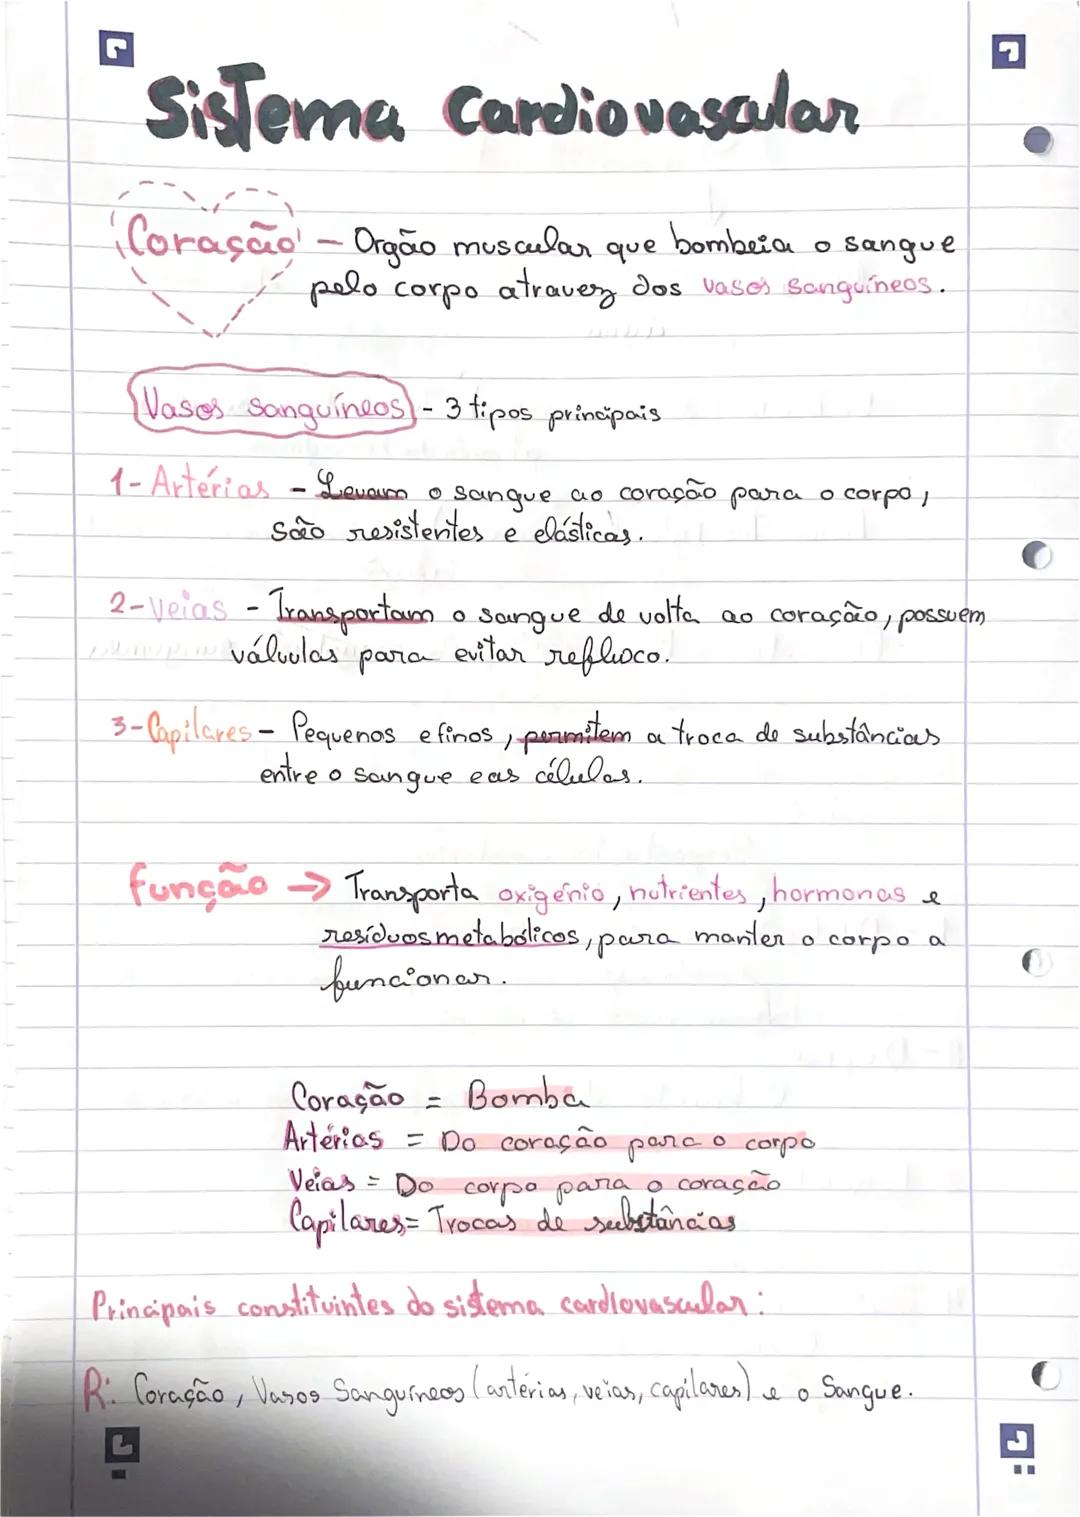 Sistema Cardiovascular
Coração - Orgão muscular que bombeia o sangue
pelo corpo atravez dos vasos sanguíneos.
Vasos sanguíneos - 3 tipos principais
1- Artérias - Levam o sangue ao coração para o corpo,
são resistentes e elásticas.
2- Veias - Transportam o sangue de volta ao coração, possuem
válvulas para evitar refluoco.
3- Capilares - Pequenos e finos, permitem a troca de substâncias
entre o sangue e as células.
função → Transporta oxigénio, nutrientes, hormonas e
resíduos metabólicos, para manter o corpo a
funcionar.
Coração = Bomba
Artérias = Do coração para o corpo
Veias = Do corpo para o coração
Capilares = Trocas de substâncias
Principais constituintes do sistema cardiovascular:
R: Coração, Vasos Sanguíneos (artérias, veias, capilares) e o Sangue.